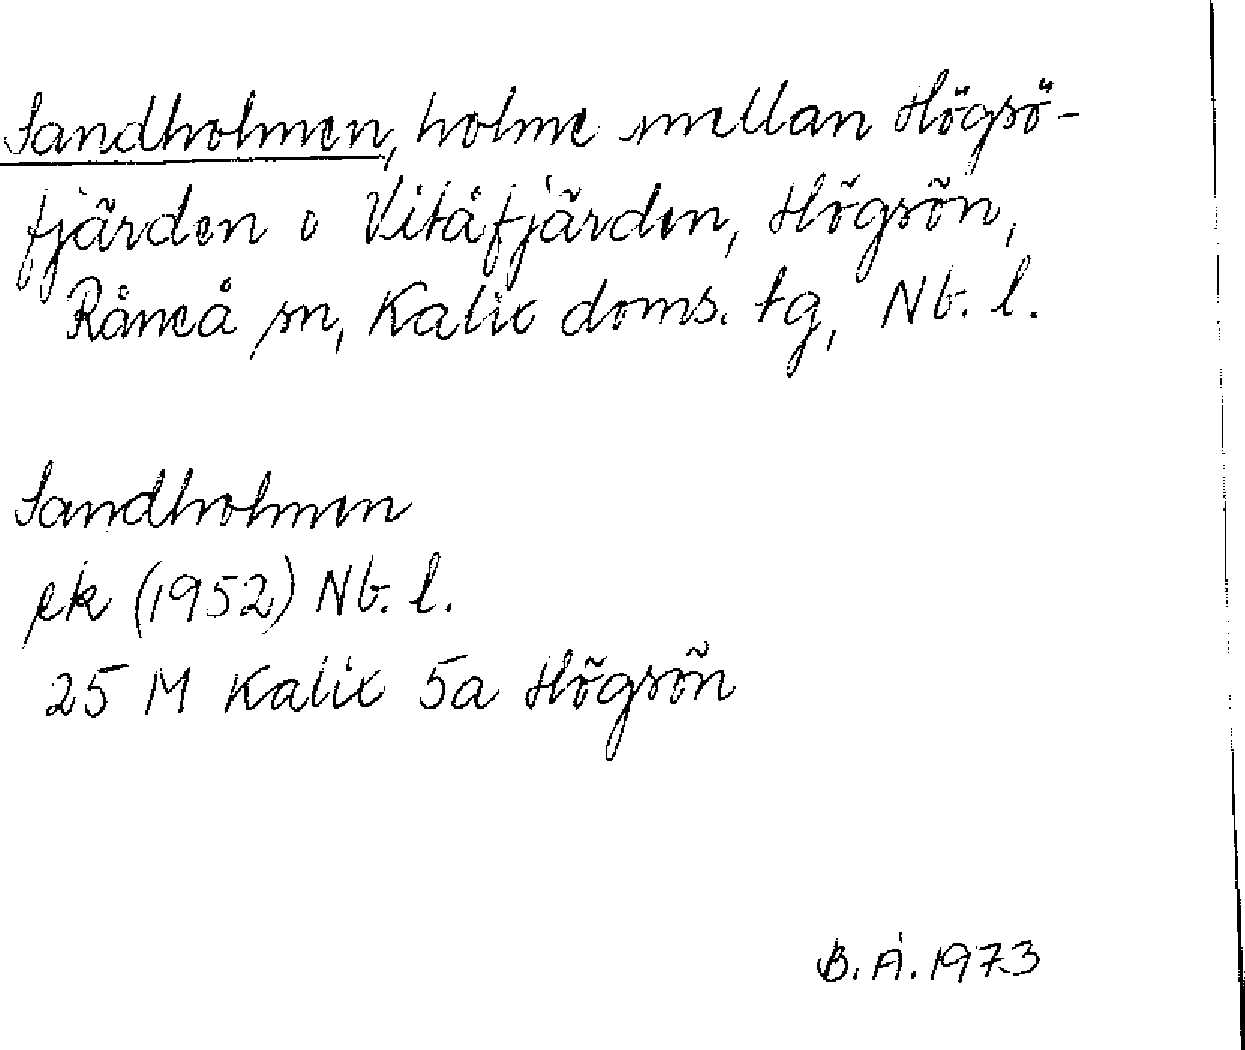 Sandholmen, holme mellan Högsö-
fjärden o Vitåfjärden, Högsön,
Råneå sn, Kalix doms. tg, Nb. l.
Sandholmen
ek (1952) Nb. l.
25 M Kalix 5a Högsön
B. Å. 1973